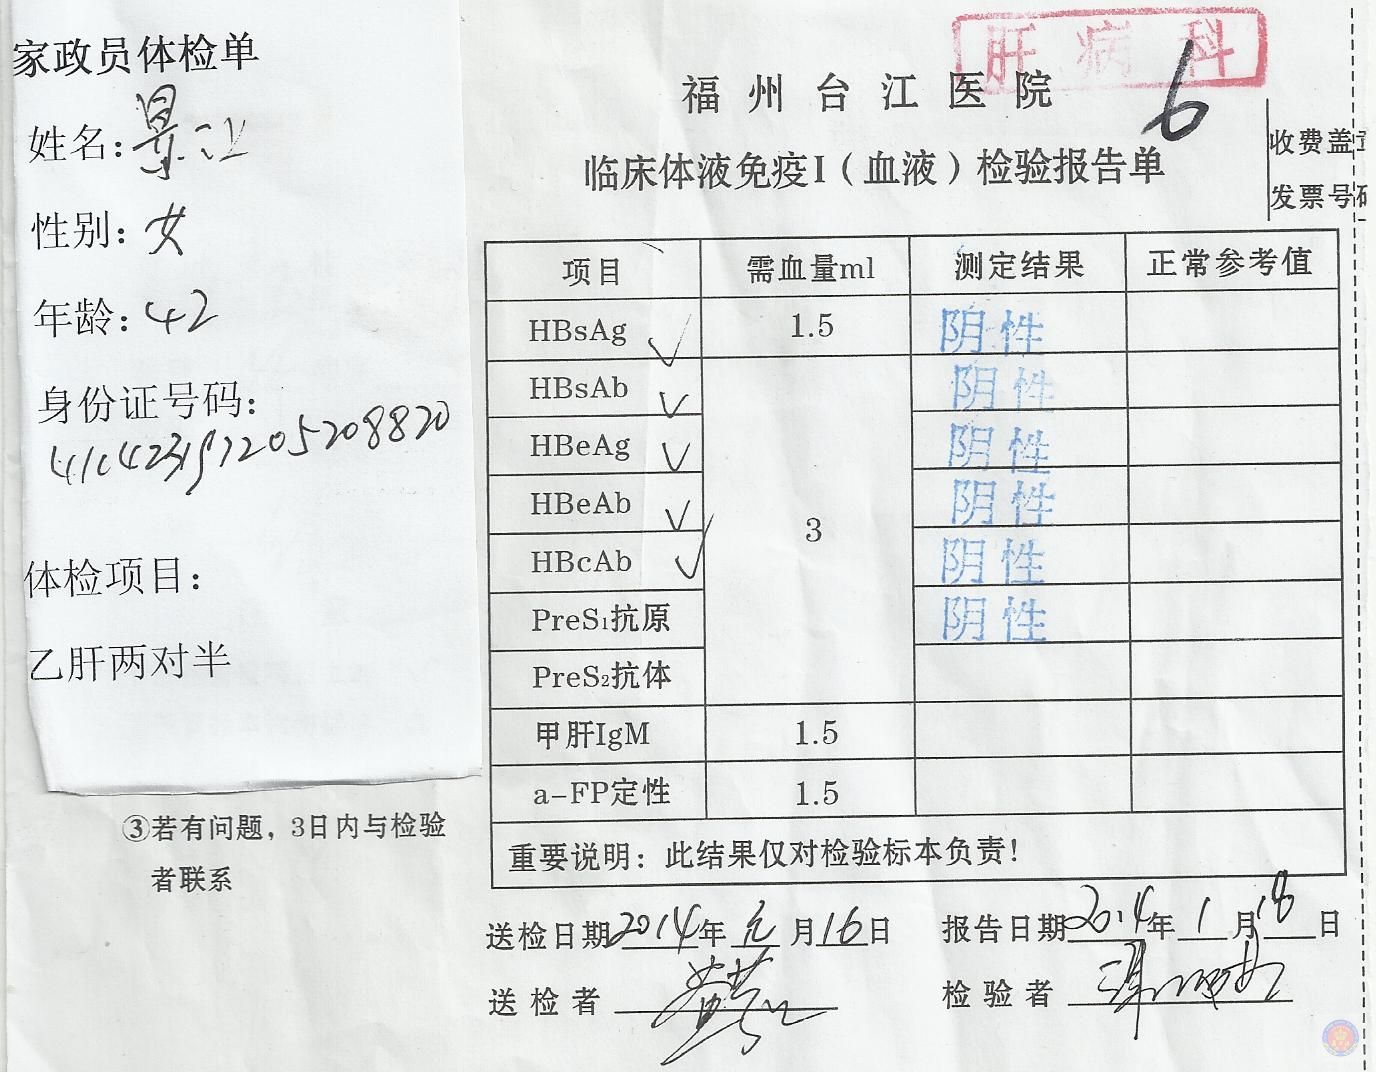 家政员体检单
姓名:景
性别:女
年龄:42
身份证号码:
体检项目:
乙肝两对半
③若有问题,3日内与检验
者联系
肝病科
6
福州台江医院
临床体液免疫I(血液)检验报告单
收费盖
发票号
项目 需血量ml 测定结果 正常参考值
HBsAg 1.5 阴性
HBsAb 阴性
HBeAg 阴性
HBeAb 3 阴性
HBcAb 阴性
PreS₁抗原 阴性
PreS₂抗体
甲肝IgM 1.5
a-FP定性 1.5
重要说明:此结果仅对检验标本负责!
送检日期2014年元月16日 报告日期2014年1月18日
送检者 检验者